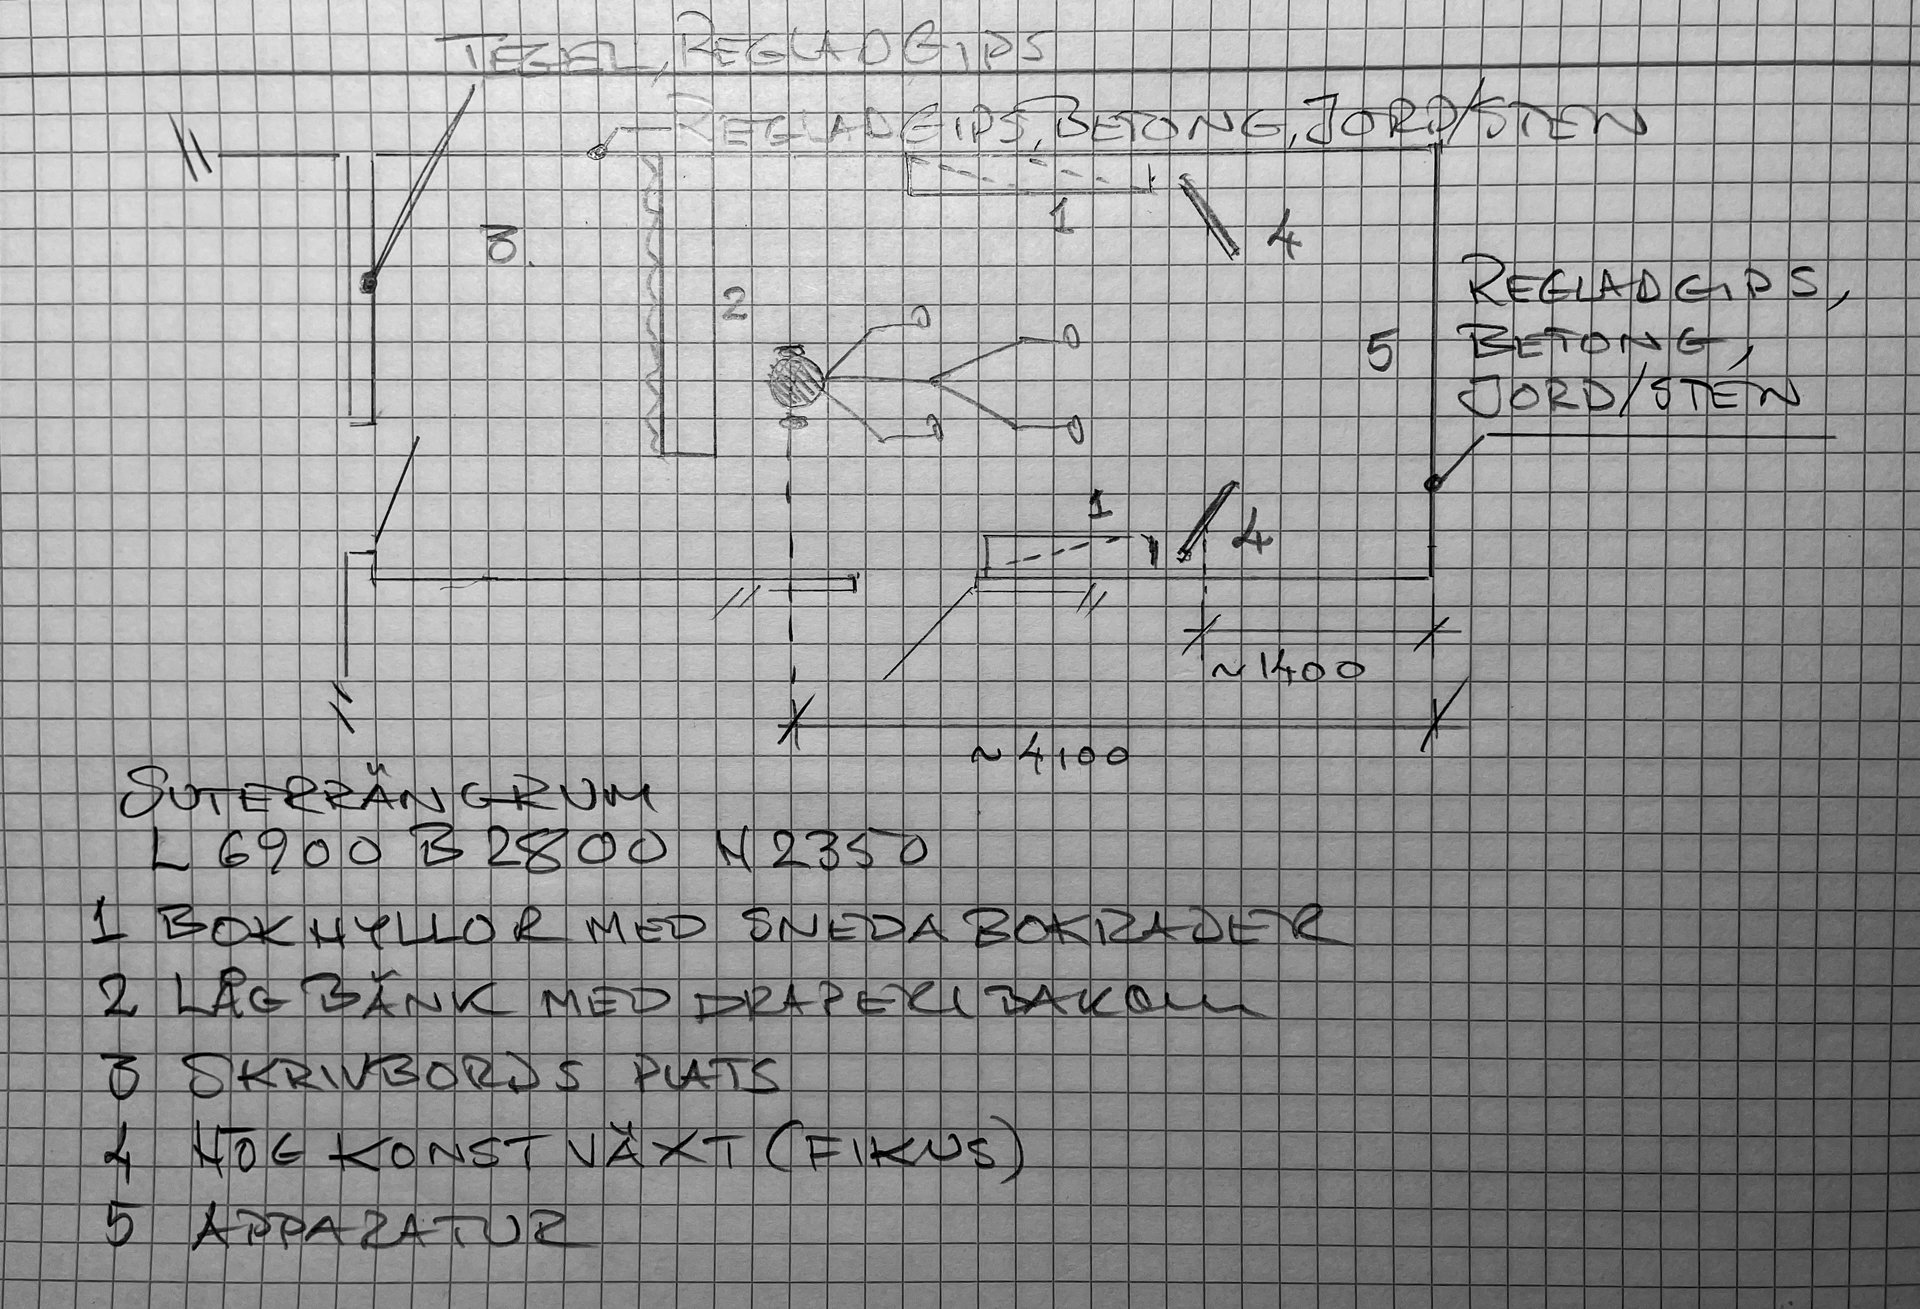 TEGEL, REGLAD GIPS
REGLAD GIPS, BETONG, JORD/STEN
1
3.
4
2
REGLAD GIPS,
5
BETONG,
JORD/STEN
1
4
~1400
~4100
SUTERRÄNGRUM
L 6900 B 2800 H 2350
1 BOKHYLLOR MED SNEDA BOKRADER
2 LÅG BÄNK MED DRAPERI BAKOM
3 SKRIVBORDS PLATS
4 HÖG KONSTVÄXT (FIKUS)
5 APPARATUR